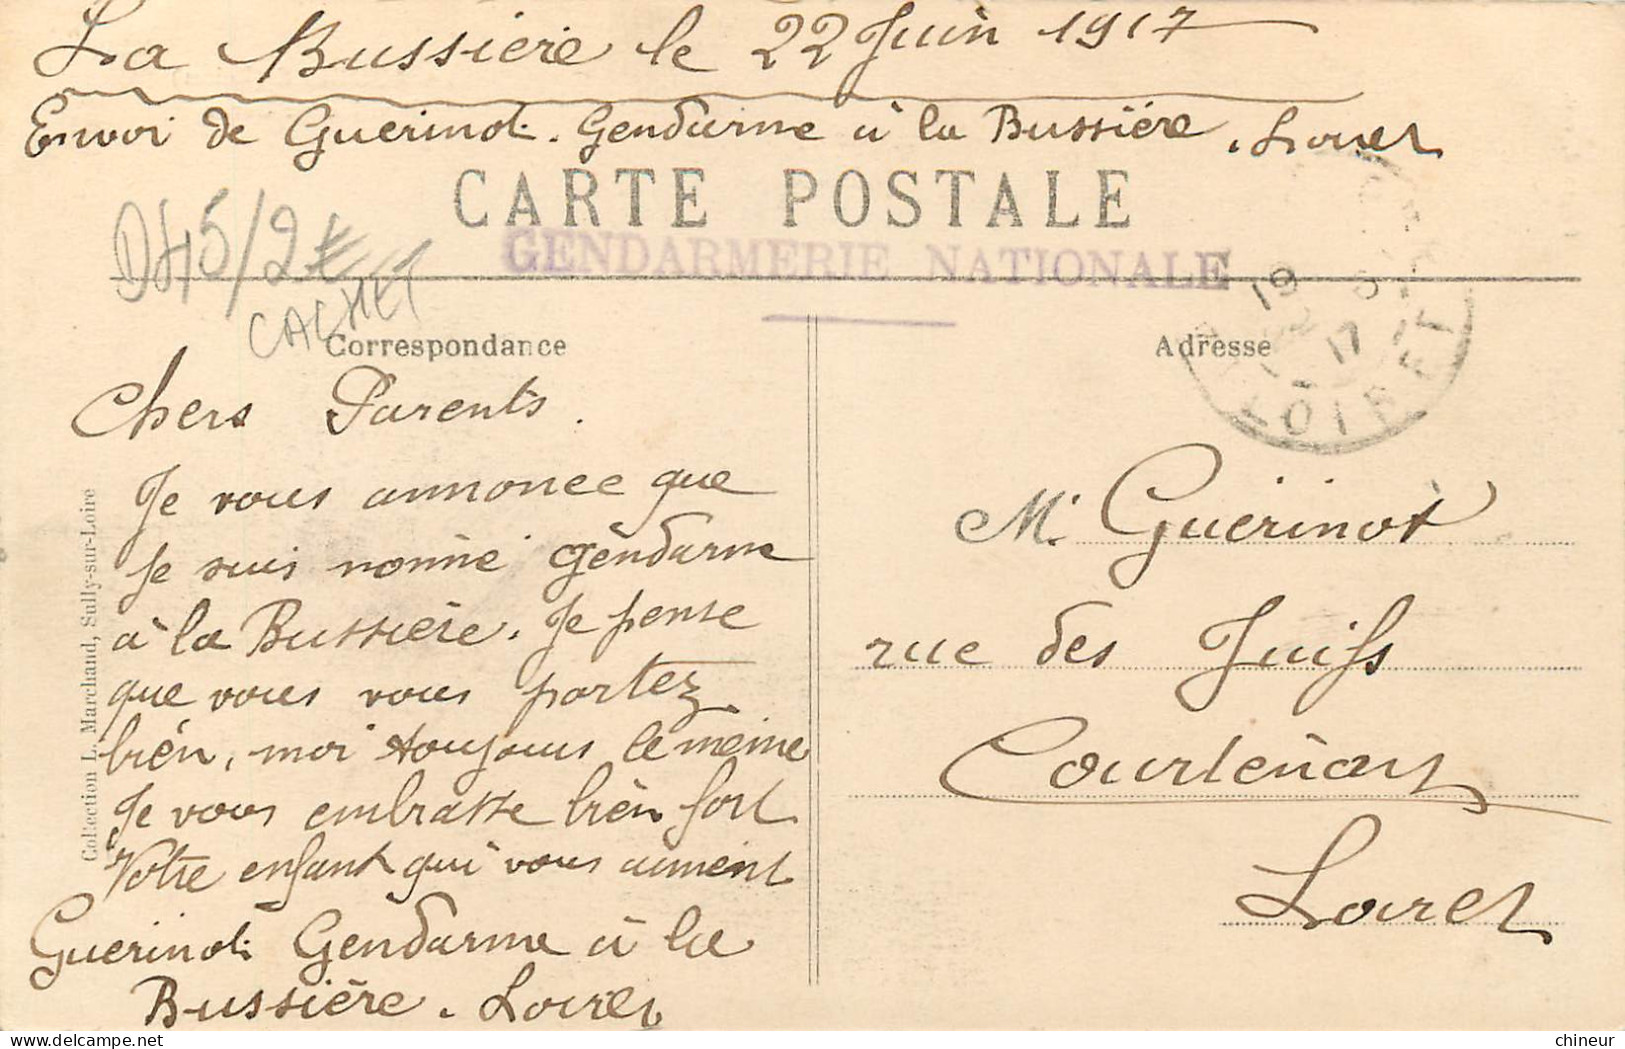 La Bussière le 22 Juin 1917
Envoi de Guerinot. Gendarme à la Bussière. Loiret
CARTE POSTALE
GENDARMERIE NATIONALE
D45/2€
CACHET
Correspondance
Adresse
19
17
LOIRET
Chers Parents.
Je vous annonce que
je suis nommé gendarme
à la Bussière. Je pense
que vous vous portez
bien, moi toujours le meme
Je vous embrasse bien fort
Votre enfant qui vous aiment
Guerinot Gendarme à la
Bussière. Loiret
Mr. Guerinot
rue des Juifs
Courtenay
Loiret
Collection L. Marchand, Sully-sur-Loire
chineur